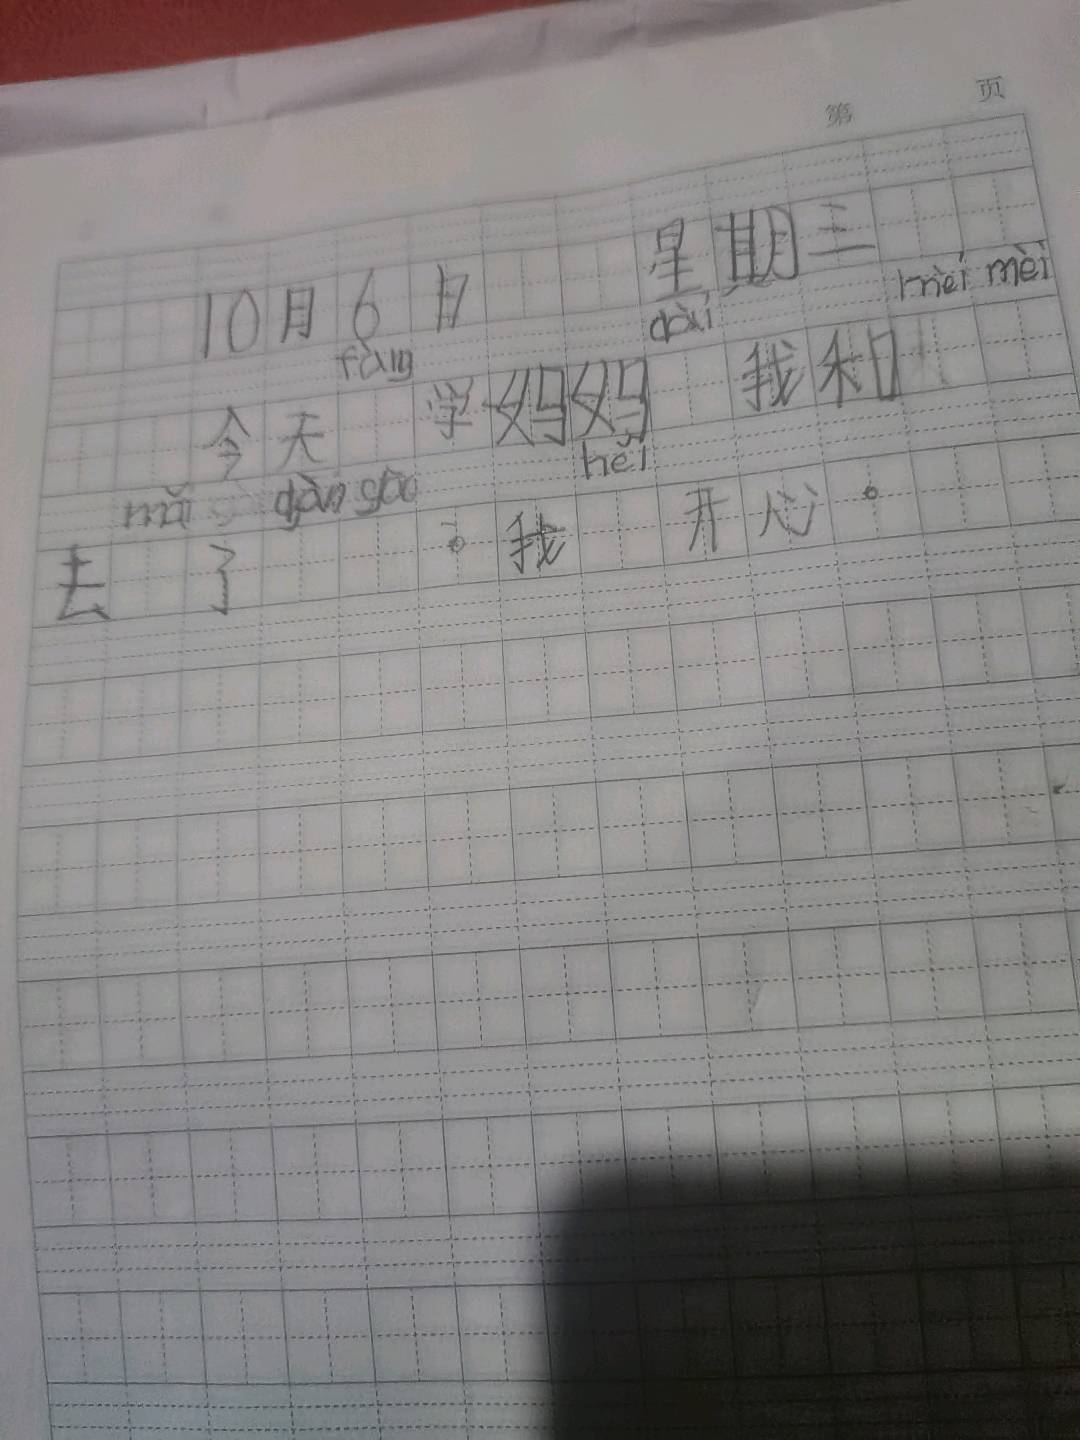 第 页
10月6日 星期三
fàng dài mèi mèi
今天 学妈妈 我和
mǎi dàn gāo hěi
去 了 。我 开心。